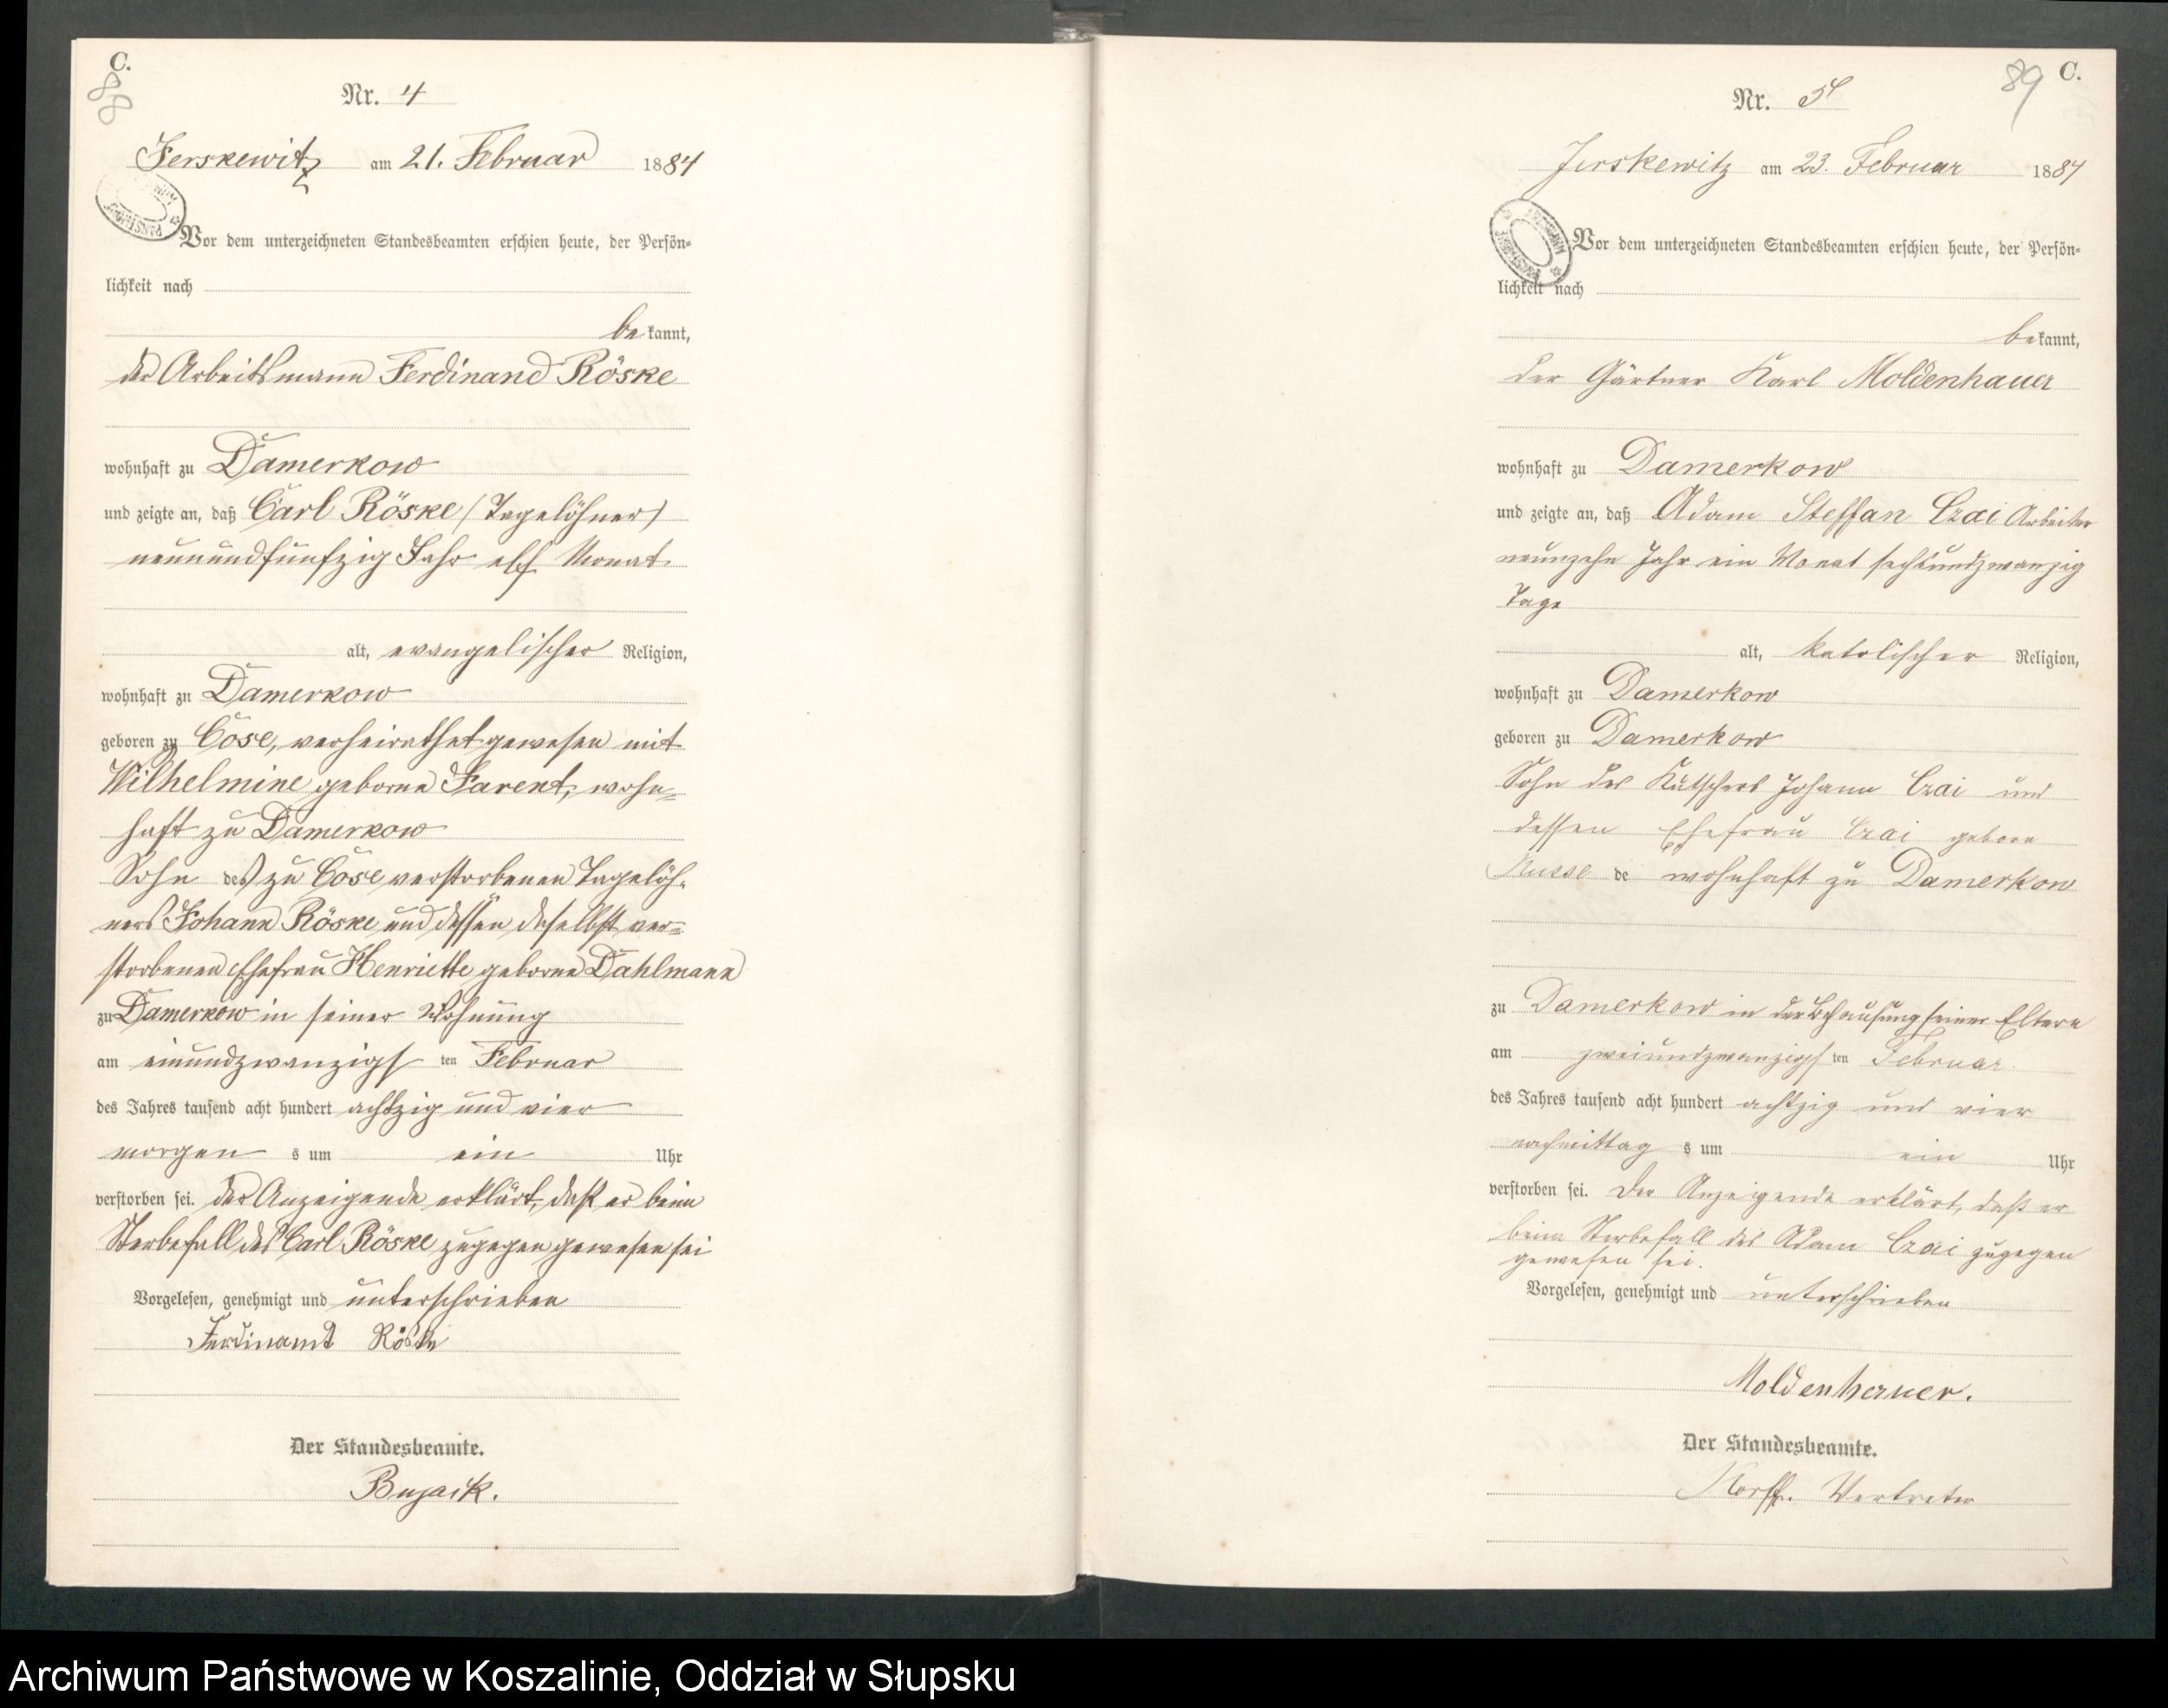 C.
88
Nr. 4
Jerskewitz am 21. Februar 1884
Vor dem unterzeichneten Standesbeamten erschien heute, der Persön-
lichkeit nach
bekannt,
der Arbeitsmann Ferdinand Röske
wohnhaft zu Damerkow
und zeigte an, daß Carl Röske (Tagelöhner)
neunundfünfzig Jahr elf Monat
alt, evangelischer Religion,
wohnhaft zu Damerkow
geboren zu Cose, verheirathet gewesen mit
Wilhelmine geborne Farent, wohn-
haft zu Damerkow
Sohn des zu Cose verstorbenen Tagelöh-
ners Johann Röske und dessen daselbst ver-
storbenen Ehefrau Henriette geborne Dahlmann
zu Damerkow in seiner Wohnung
am einundzwanzigsten Februar
des Jahres tausend acht hundert achtzig und vier
morgens um ein Uhr
verstorben sei. der Anzeigende erklärt, daß er beim
Sterbefall des Carl Röske zugegen gewesen sei
Vorgelesen, genehmigt und unterschrieben
Ferdinamt Röske
Der Standesbeamte.
Bujack.
C.
89
Nr. 5
Jerskewitz am 23. Februar 1884
Vor dem unterzeichneten Standesbeamten erschien heute, der Persön-
lichkeit nach
bekannt,
der Gärtner Karl Moldenhauer
wohnhaft zu Damerkow
und zeigte an, daß Adam Steffan Czai Arbeiter
neunzehn Jahr ein Monat sechsundzwanzig
Tage
alt, katolischer Religion,
wohnhaft zu Damerkow
geboren zu Damerkow
Sohn des Kutschers Johann Czai und
dessen Ehefrau Czai geborn
de wohnhaft zu Damerkow
zu Damerkow in der Behausung seiner Eltern
am zweiundzwanzigsten Februar
des Jahres tausend acht hundert achtzig und vier
nachmittags um ein Uhr
verstorben sei. Der Anzeigende erklärt, daß er
beim Sterbefall des Adam Czai zugegen
gewesen sei.
Vorgelesen, genehmigt und unterschrieben
Moldenhauer.
Der Standesbeamte.
Vertreter
Archiwum Państwowe w Koszalinie, Oddział w Słupsku